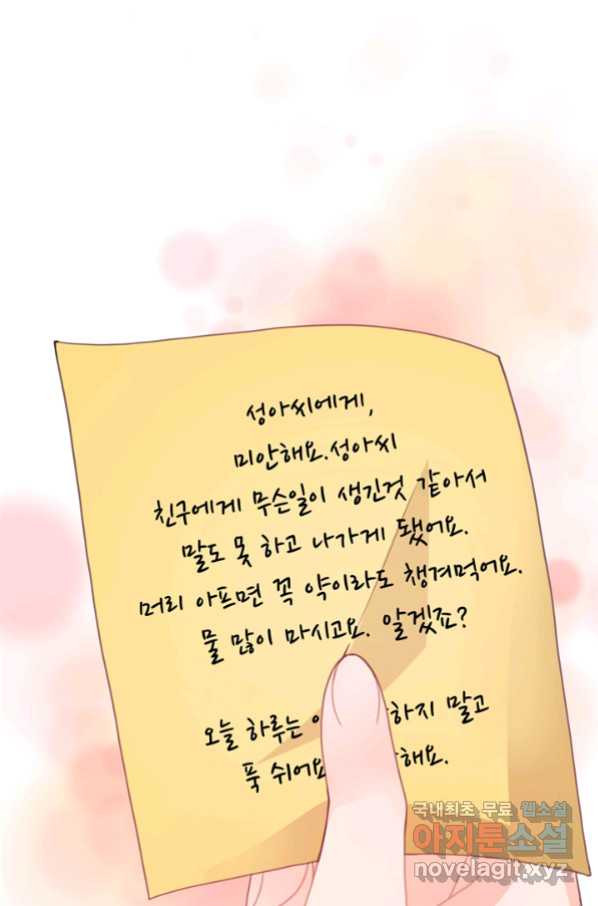 성아씨에게,
미안해요.성아씨
친구에게 무슨일이 생긴것 같아서
말도 못 하고 나가게 됐어요.
머리 아프면 꼭 약이라도 챙겨먹어요.
물 많이 마시고요. 알겠죠?
오늘 하루는 말고
푹
국내최초 무료 웹소설
아지툰소설
novelagit.xyz